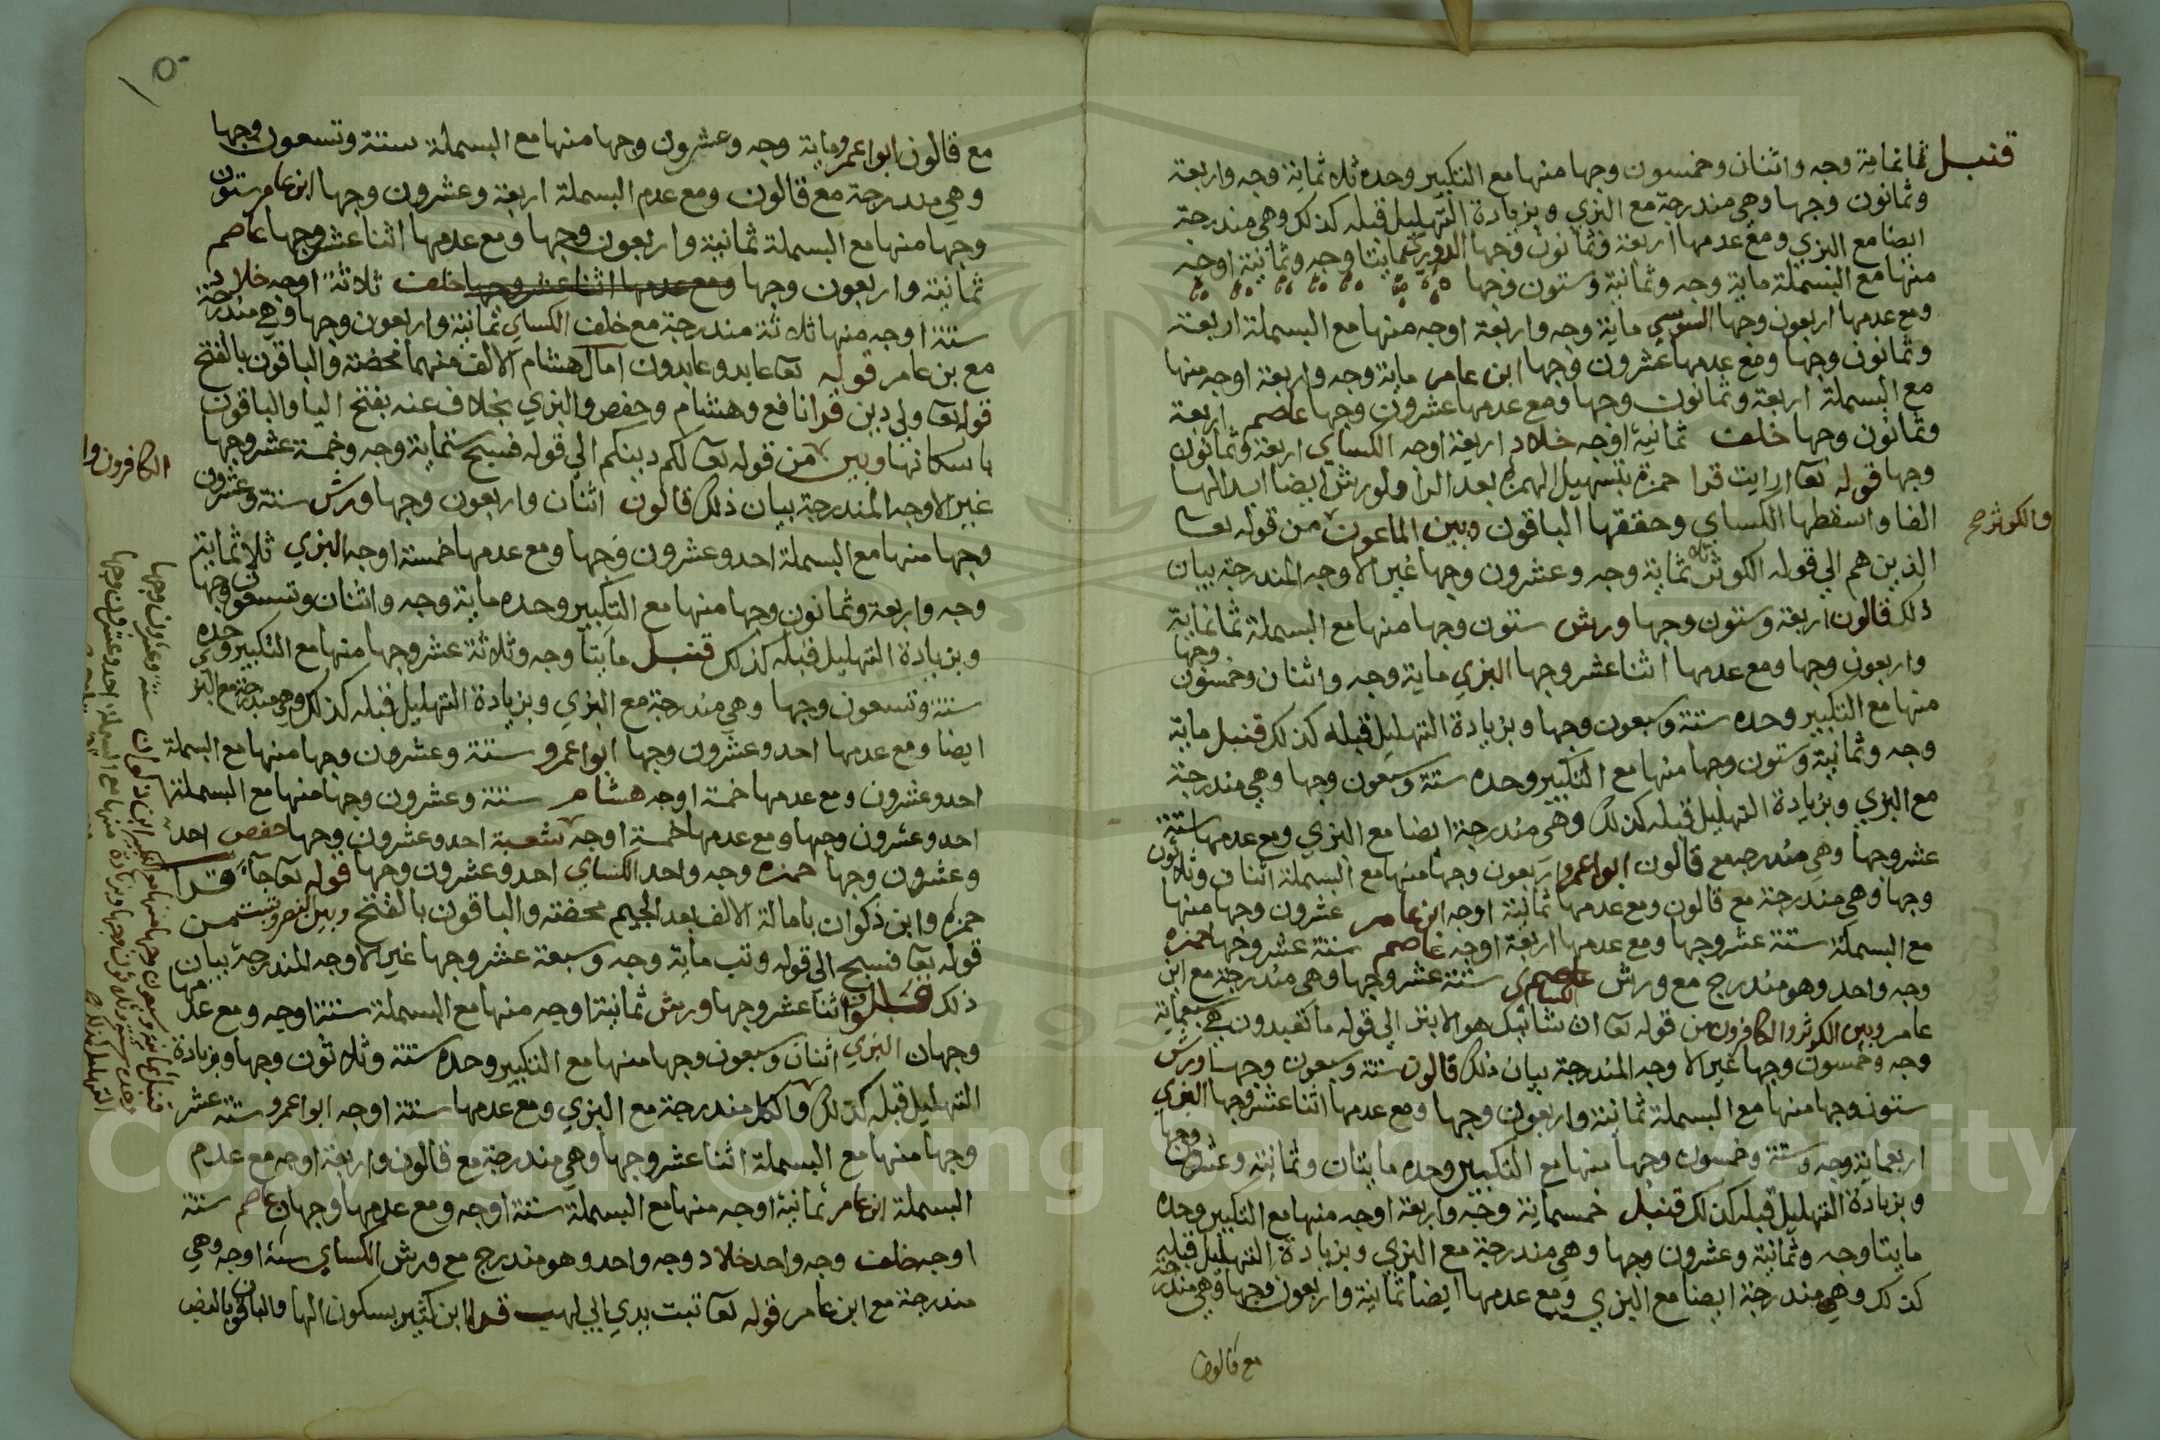 قنبل ثمانماية وجه واثنان وخمسون وجها منها مع التكبير وحده ثلاثماية وجه واربعة
وثمانون وجها وهي مندرجة مع البزي وبزيادة التهليل قبله كذلك وهي مندرجة
ايضا مع البزي ومع عدمها اربعة وثمانون وجها الدوري مايتا وجه وثمانية اوجه
منها مع البسملة ماية وجه وثمانية وستون وجها
ومع عدمها اربعون وجها السوسي ماية وجه واربعة اوجه منها مع البسملة اربعة
وثمانون وجها ومع عدمها عشرون وجها ابن عامر ماية وجه واربعة اوجه منها
مع البسملة اربعة وثمانون وجها ومع عدمها عشرون وجها عاصم اربعة
وثمانون وجها خلف ثمانية اوجه خلاد اربعة اوجه الكساي اربعة وثمانون
وجها قوله تعا ارايت قرا حمزة بتسهيل الهمزة بعد الرا ولورش ايضا ابدالها
الفا واسقطها الكساي وحققها الباقون وبين الماعون من قوله تعا
والكوثر صح
الذين هم الي قوله الكوثر ثماية وجه وعشرون وجها غير الاوجه المندرجة بيان
ذلك قالون اربعة وستون وجها ورش ستون وجها منها مع البسملة ثمانماية
واربعون وجها ومع عدمها اثنا عشر وجها البزي ماية وجه واثنان وخمسون وجها
منها مع التكبير وحده ستة وسبعون وجها وبزيادة التهليل قبله كذلك قنبل ماية
وجه وثمانية وستون وجها منها مع التكبير وحده ستة وسبعون وجها وهي مندرجة
مع البزي وبزيادة التهليل قبله كذلك وهي مندرجة ايضا مع البزي ومع عدمها ستة
عشر وجها وهي مندرجه مع قالون ابوا عمرو اربعون وجها منها مع البسملة اثنان وثلاثون
وجها وهي مندرجة مع قالون ومع عدمها ثمانية اوجه ابن عامر عشرون وجها منها
مع البسملة ستة عشر وجها ومع عدمها اربعة اوجه عاصم ستة عشر وجها حمزه
وجه واحد وهو مندرج مع ورش الكساي ستة عشر وجها وهي مندرجة مع ابن
عامر وبين الكوثر والكافرون من قوله تعا ان شانيك هو الابتر الي قوله ما تعبدون سبعماية
وجه وخمسون وجها غير الاوجه المندرجة بيان ذلك قالون ستة وسبعون وجها ورش
ستون وجها منها مع البسملة ثمانية واربعون وجها ومع عدمها اثنا عشر وجها البزي
اربعماية وجه وستة وخمسون وجها منها مع التكبير وحده مايتان وثمانية وعشرون وجها
وبزيادة التهليل قبله كذلك قنبل خمسماية وجه واربعة اوجه منها مع التكبير وحده
مايتا وجه وثمانية وعشرون وجها وهي مندرجة مع البزي وبزيادة التهليل قبله
كذلك وهي مندرجة ايضا مع البزي ومع عدمها ايضا ثمانية واربعون وجها وهي مندرجة
مع قالون
٥٠
مع قالون ابوا عمرو ماية وجه وعشرون وجها منها مع البسملة ستة وتسعون وجها
وهي مندرجة مع قالون ومع عدم البسملة اربعة وعشرون وجها ابن عامر ستون
وجها منها مع البسملة ثمانية واربعون وجها ومع عدمها اثنا عشر وجها عاصم
ثمانية واربعون وجها ومع عدمها اثنا عشر وجها خلف ثلاثة اوجه خلاد
ستة اوجه منها ثلاثة مندرجة مع خلف الكساي ثمانية واربعون وجها وهي مندرجة
مع بن عامر قوله تعا عابد وعابدون امال هشام الالف منهما محضة والباقون بالفتح
قوله تعا ولي دين قرا نافع وهشام وحفص والبزي بخلاف عنه بفتح اليا والباقون
باسكانها وبين من قوله تعا لكم دينكم الي قوله فسبح ستماية وجه وخمسة عشر وجها
الكافرون وا
غير الاوجه المندرجة بيان ذلك قالون اثنان واربعون وجها ورش ستة وعشرون
وجها منها مع البسملة احد وعشرون وجها ومع عدمها خمسة اوجه البزي ثلاثماية
وجه واربعة وثمانون وجها منها مع التكبير وحده ماية وجه واثنان وتسعون وجها
وبزيادة التهليل قبله كذلك قنبل مايتا وجه وثلاثة عشر وجها منها مع التكبير وحده
ستة وتسعون وجها وهي مندرجة مع البزي وبزيادة التهليل قبله كذلك وهي مندرجة مع البزي
ايضا ومع عدمها احد وعشرون وجها ابوا عمرو ستة وعشرون وجها منها مع البسملة
احد وعشرون ومع عدمها خمسة اوجه هشام ستة وعشرون وجها منها مع البسملة
احد وعشرون وجها ومع عدمها خمسة اوجه شعبة احد وعشرون وجها حفص احد
وعشرون وجها حمزه وجه واحد الكساي احد وعشرون وجها قوله تعا جآ قرا
حمزة وابن ذكوان بامالة الالف بعد الجيم محضة والباقون بالفتح وبين النصر وتبت من
قوله تعا فسبح الى قوله وتب ماية وجه وسبعة عشر وجها غير الاوجه المندرجة بيان
ذلك قالون اثنا عشر وجها ورش ثمانية اوجه منها مع البسملة ستة اوجه ومع عدمها
وجهان البزي اثنان وسبعون وجها منها مع التكبير وحده ستة وثلاثون وجها وبزيادة
التهليل قبله كذلك والكل مندرجة مع البزي ومع عدمها ستة اوجه ابوا عمرو ستة عشر
وجها منها مع البسملة اثنا عشر وجها وهي مندرجة مع قالون واربعة اوجه مع عدم
البسملة ابن عامر ثمانية اوجه منها مع البسملة ستة اوجه ومع عدمها وجهان عاصم ستة
اوجه خلف وجه واحد خلاد وجه واحد وهو مندرج مع ورش الكساي ستة اوجه وهي
مندرجة مع ابن عامر قوله تعا تبت يدي ابي لهب قرا ابن كثير بسكون الها والباقون بالفتح
Copyright © King Saud University
195